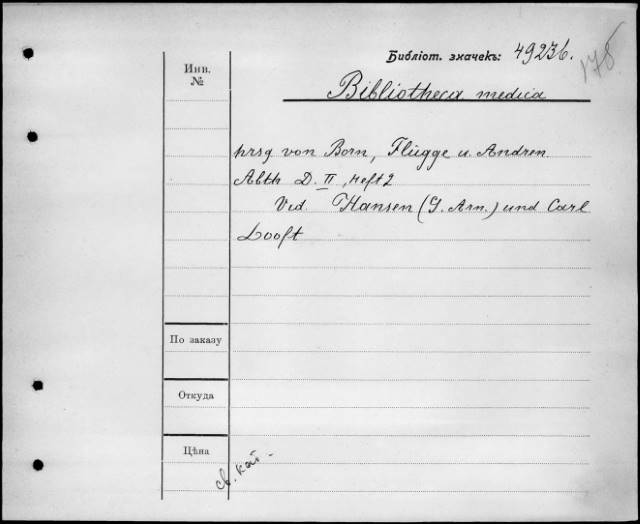 Библiот. значекъ: 49236.
178
Инв.
№
Bibliotheca medica
hrsg von Born, Flügge u. Andren.
Abth D. II, Heft 2
Vid. Hansen (G. Arm.) und Carl
Looft
По заказу
Откуда
Цѣна
св. кат.